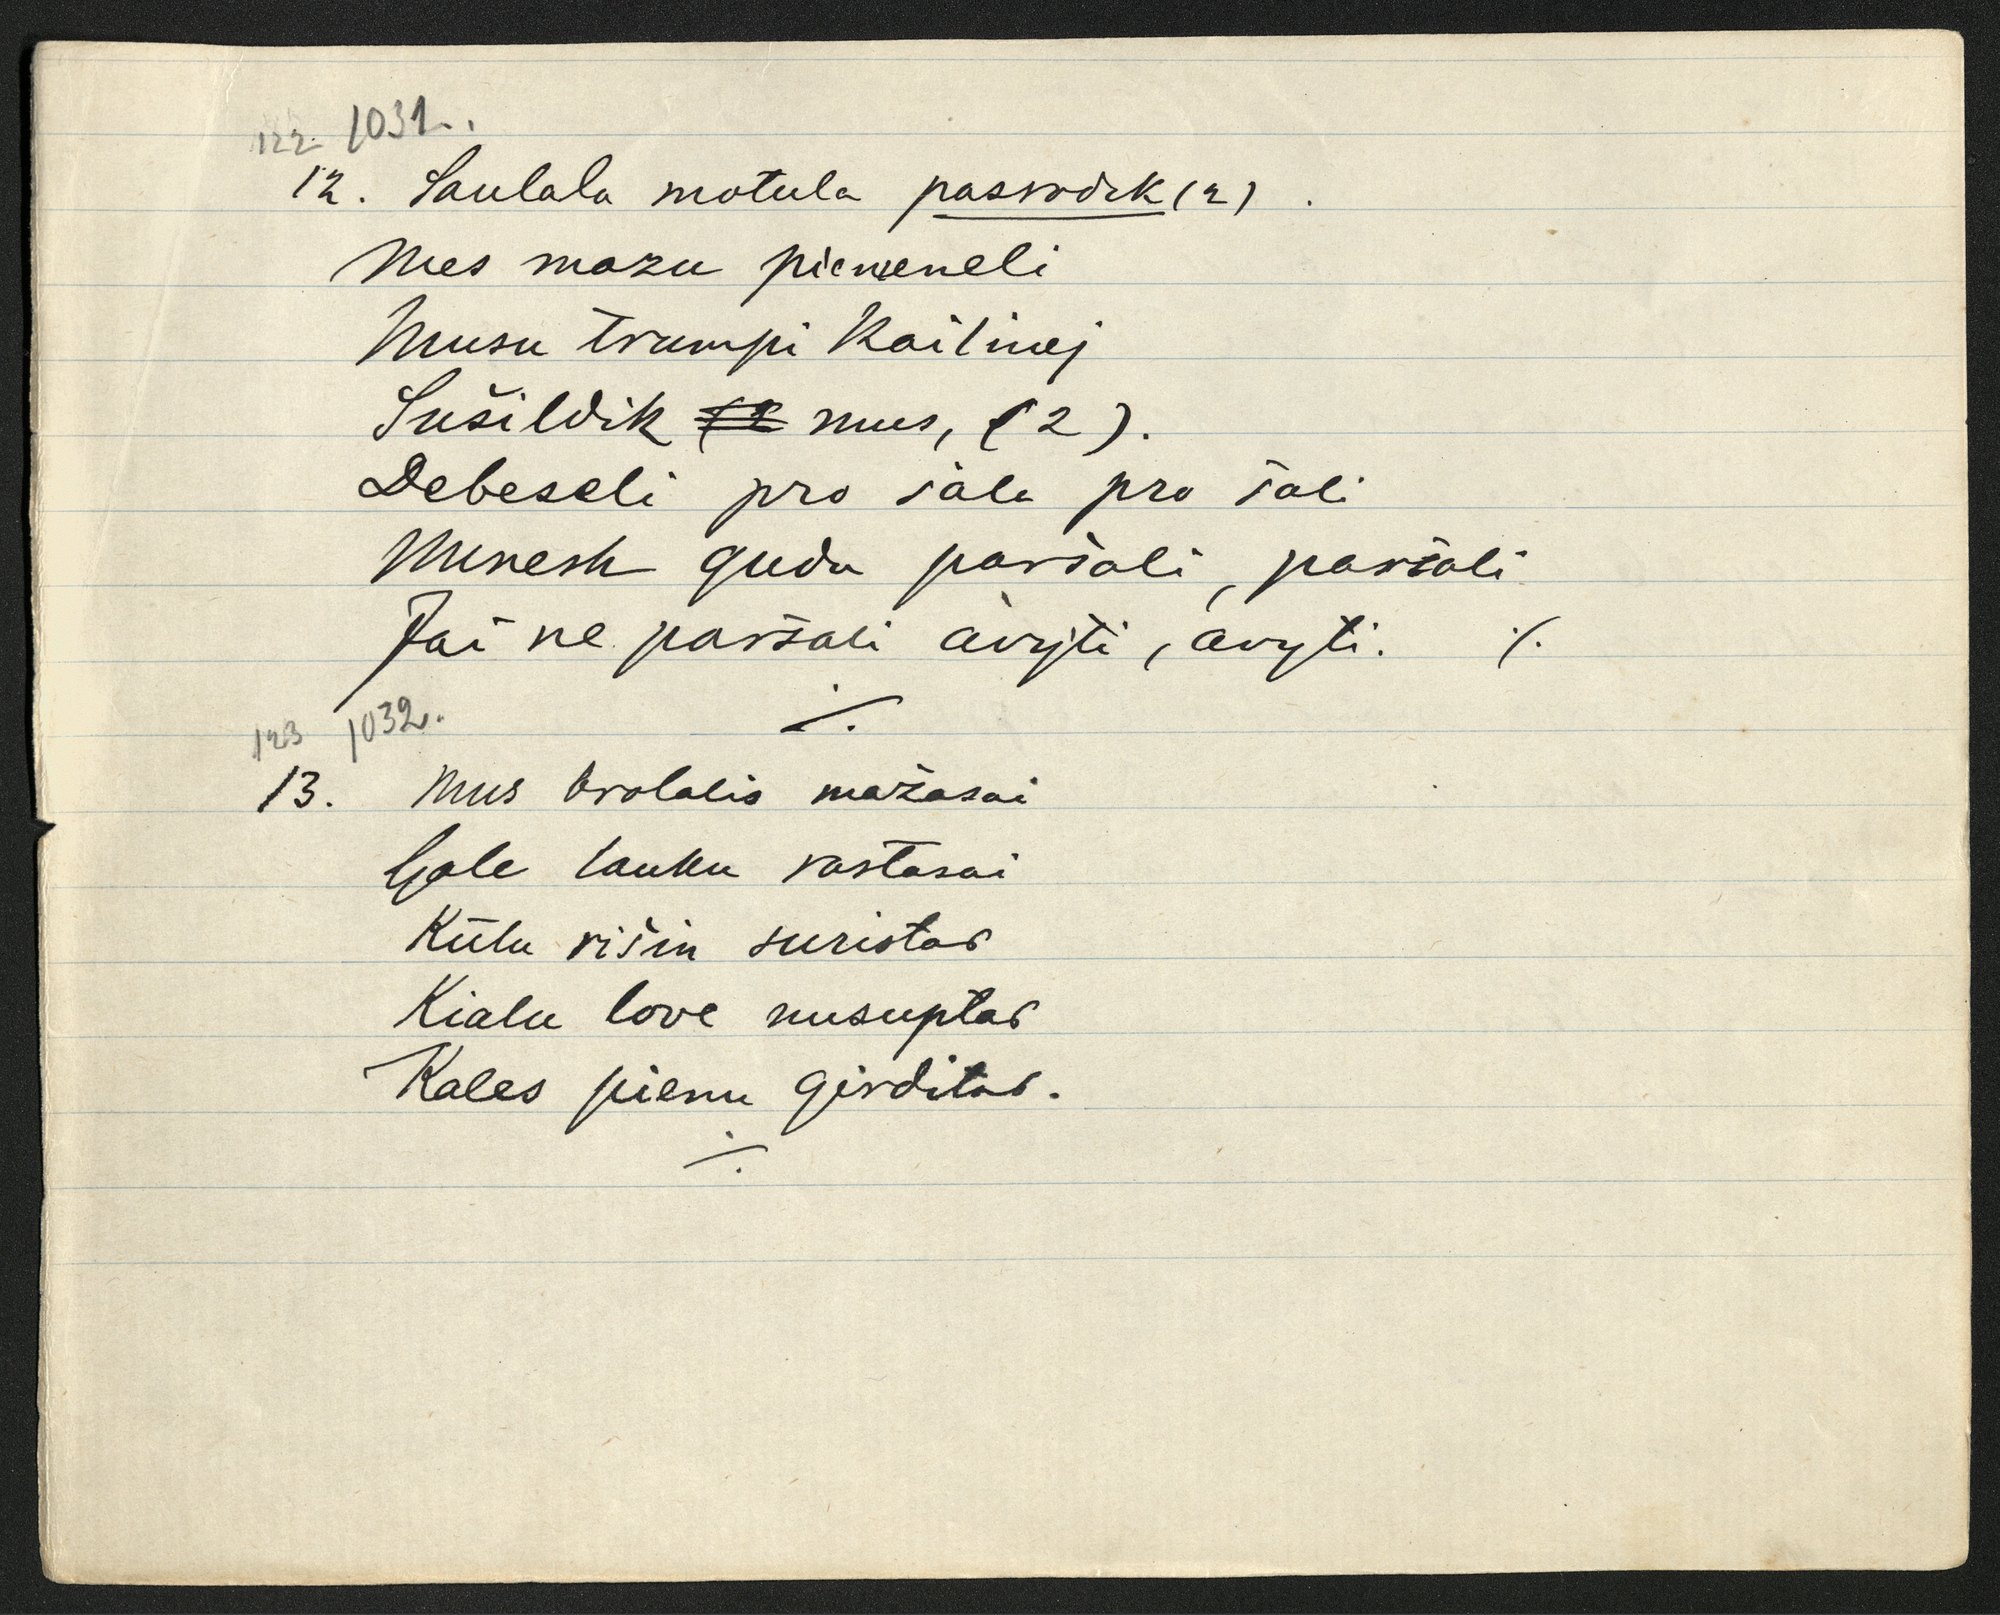 122. 1031.
12. Saulala motula pasrodik (2).
Mes mazu piemeneli
Musu trumpi kailinej
Sušildik mus, (2).
Debeseli pro šali pro šali
Minesh gudu paršali, paršali
Jai ne paršali avyti, avyti. ./.
./.
123 1032.
13. Mus brolalis mažasai
Gale lauku rastasai
Kūlu rišin suristas
Kialu love nusuptas
Kales pienu girditas.
./.